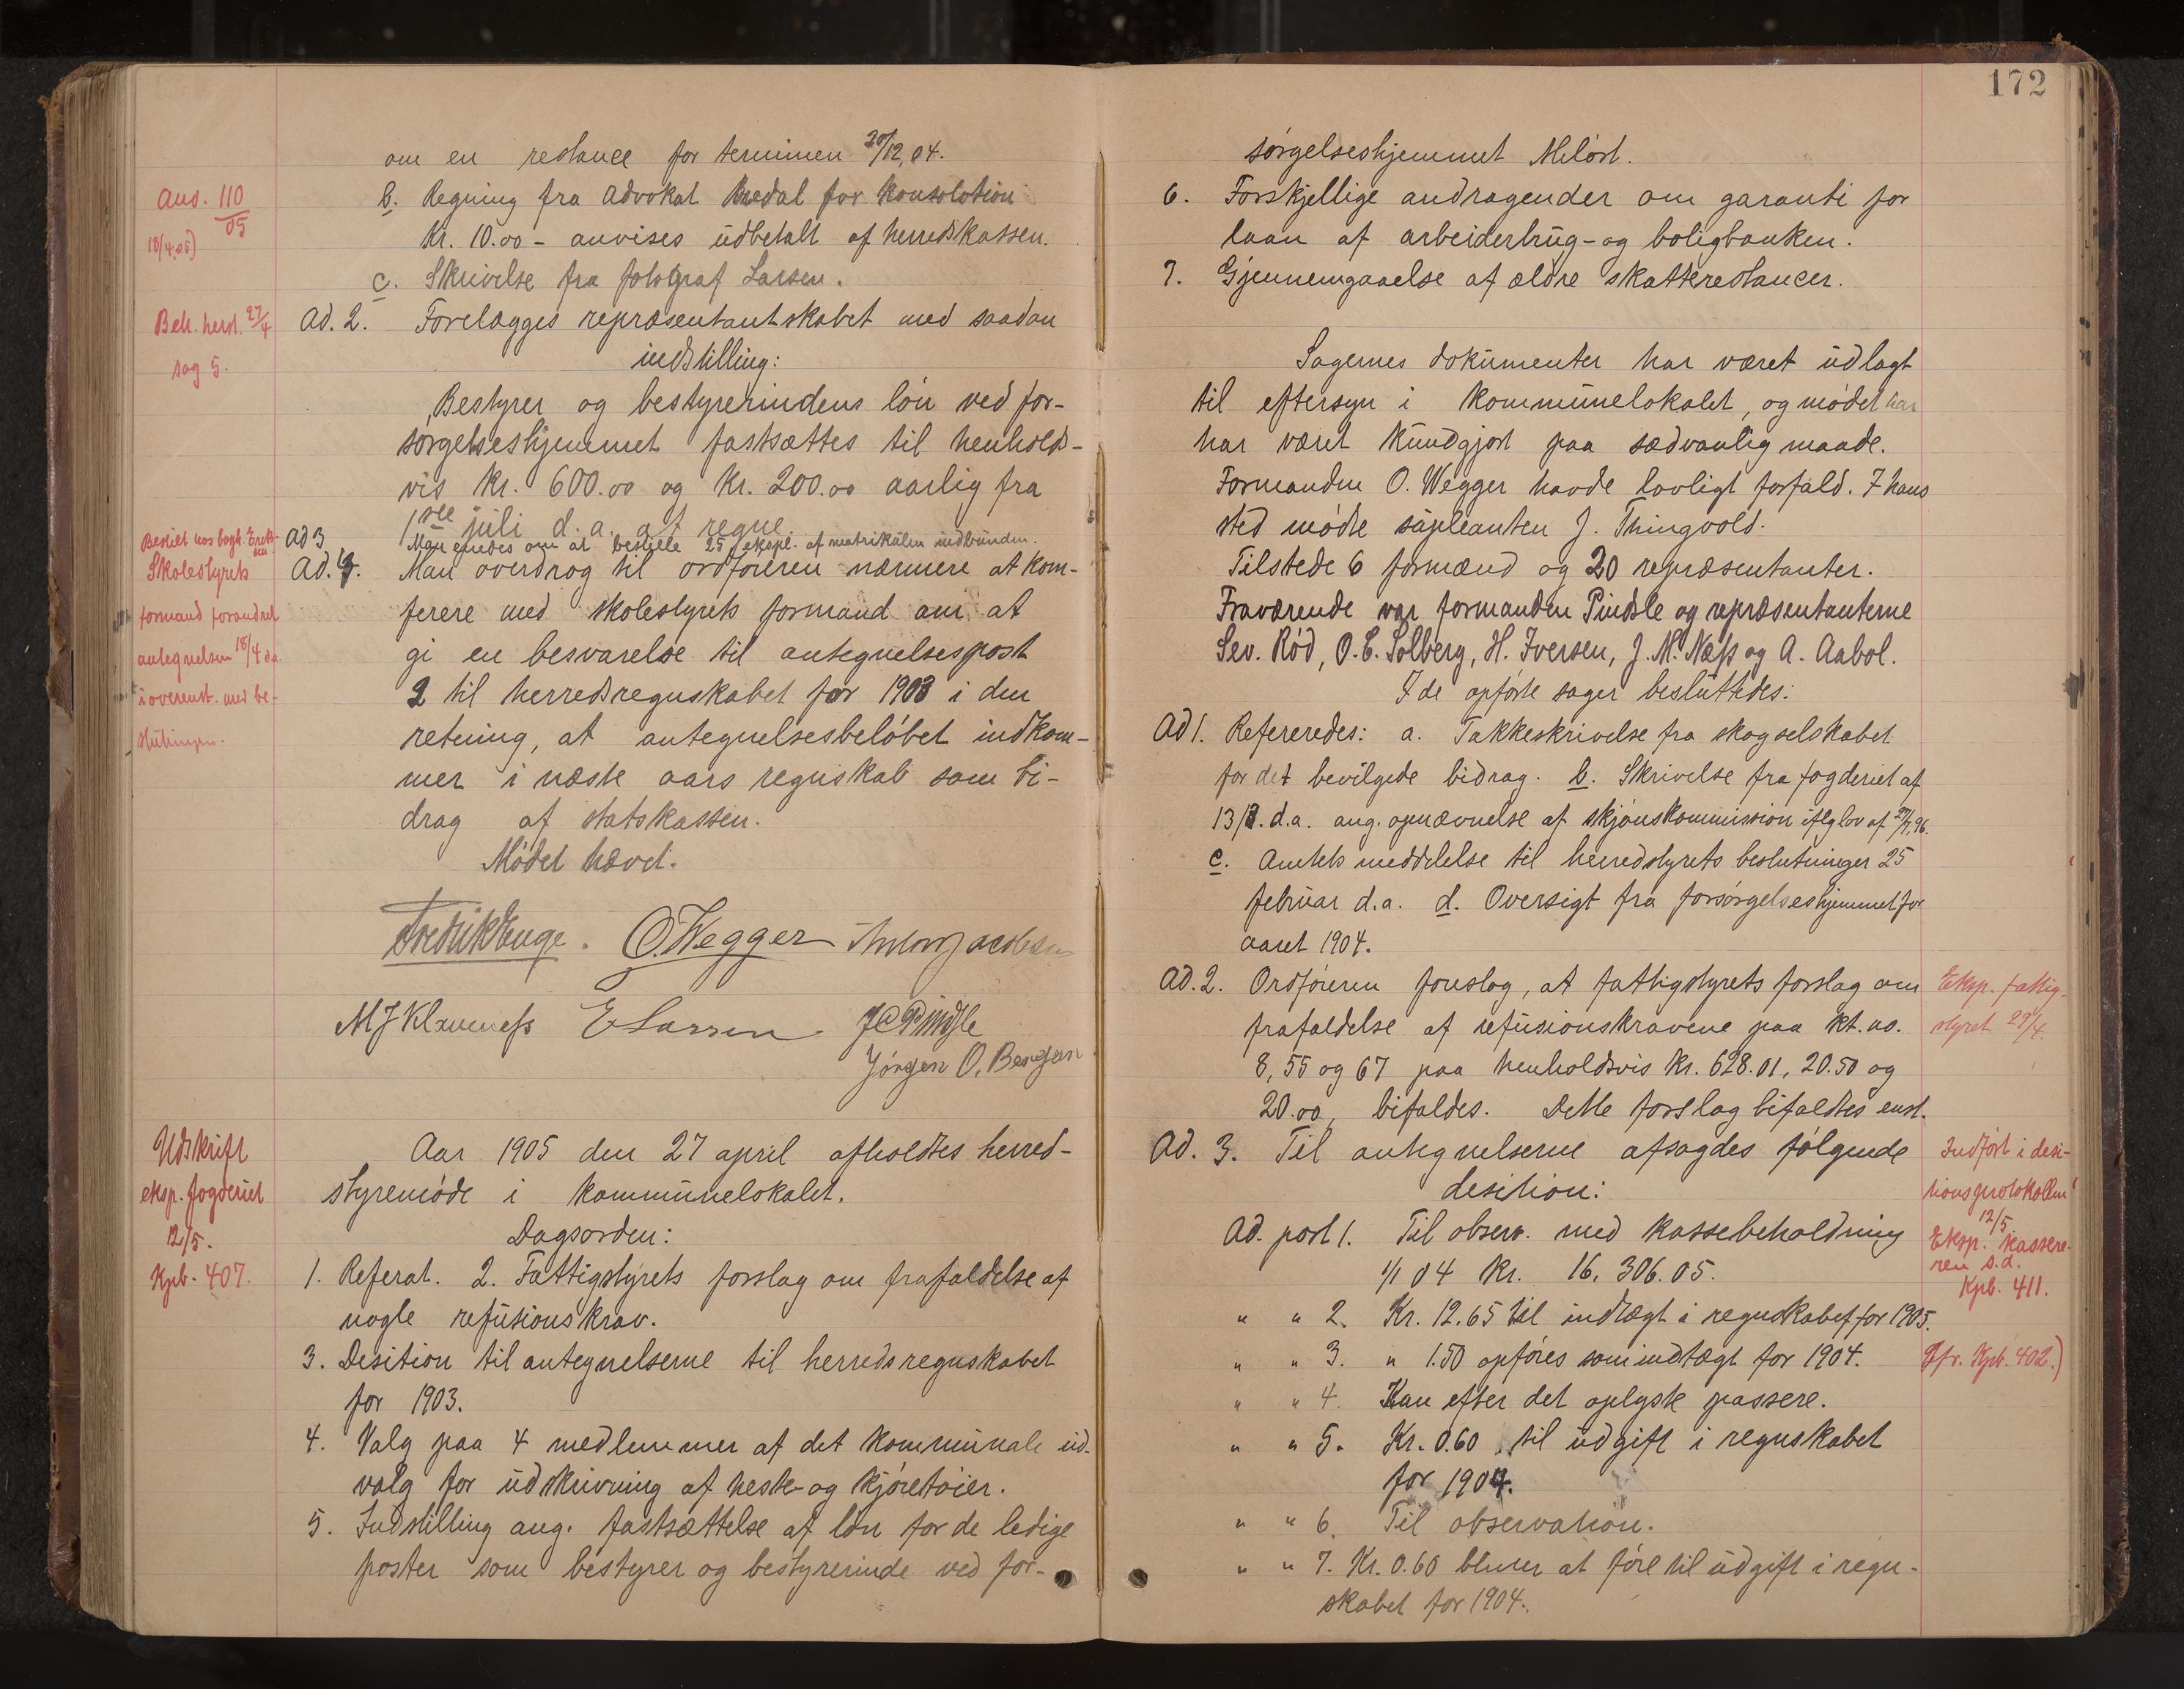 om en restance for terminen 20/12,04.
Anv. 110/05
18/4,05)
b. Regning fra advokat Bredal for konsolotion
Kr. 10.00 - anvises udbetalt af herredskassen.
c. Skrivelse fra fotograf Larsen.
Beh. herst. 27/4
sag 5.
Ad. 2. Forelægges repræsentantskabet med saadan
indstilling:
"Bestyrer og bestyrerindens løn ved for-
sørgelseshjemmet fastsættes til henholds-
vis Kr. 600.00 og Kr. 200.00 aarlig fra
1ste juli d.a. at regne.
Bestilt hos bogb.
Ad 3 Man enedes om at bestille 25 ekspl. af matrikülen indbunden.
Skolestyrets
formand forandret
antegnelsen 18/4 da
i overenst. med be-
slutningen.
Ad. 4. Man overdrog til ordføreren nærmere at kom-
ferere med skolestyrets formand om at
gi en besvarelse til antegnelsespost
2 til herredsregnskabet for 1903 i den
retning, at antegnelsesbeløbet indkom-
mer i næste aars regnskab som bi-
drag af statskassen.
Mødet hævet.
Fredrik Bugge. O. Wegger Anton Jacobsen
M J Klaveness E Larsen J C Pindsle
Jørgen O. Bergan
Udskrift
eksp. fogderiet
12/5.
Kpb. 407.
Aar 1905 den 27 april afholdtes herred-
styremøde i kommunelokalet.
Dagsorden:
1. Referat. 2. Fattigstyrets forslag om frafaldelse af
nogle refusionskrav.
3. Desition til antegnelserne til herredsregnskabet
for 1903.
4. Valg paa 4 medlemmer af det kommunale ud-
valg for udskrivning af heste- og kjøretøier.
5. Indstilling ang. fastsættelse af løn for de ledige
poster som bestyrer og bestyrerinde ved for-
172
sørgelseshjemmet Milørt.
6. Forskjellige andragender om garanti for
laan af arbeiderbrug- og boligbanken.
7. Gjennemgaaelse af ældre skatterestancer.
Sagernes dokumenter har været udlagt
til eftersyn i kommunelokalet, og mødet har
har været kundgjort paa sædvanlig maade.
Formanden O. Wegger havde lovligt forfald. I hans
sted mødte supleanten J. Thingvold.
Tilstede 6 formænd og 20 repræsentanter.
Fraværende var formanden Pindsle og repræsentanterne
Sev. Rød, O. C. Solberg, H. Iversen, J. M. Næss og A. Aabol.
I de opførte sager besluttedes:
Ad 1. Refereredes: a. Takkeskrivelse fra skogselskabet
for det bevilgede bidrag. b. Skrivelse fra fogderiet af
13/3. d.a. ang. opnævnelse af skjønskommission iflg lov af 27/7,96.
c. Amtets meddelelse til herredstyrets beslutninger 25
februar d.a. d. Oversigt fra forsørgelseshjemmet for
aaret 1904.
Ad. 2. Ordføreren foreslog, at fattigstyrets forslag om
frafaldelse af refusionskravene paa kt. no.
8, 55 og 67 paa henholdsvis Kr. 628.01, 20.50 og
20.00, bifaldes. Dette forslag bifaldtes enst.
Eksp. fattig-
styret 29/4.
Ad. 3. Til antegnelserne afsagdes følgende
desition:
Indført i desi-
tionsprotokollen
12/5
Ad. post 1. Til observ. med kassebeholdning
1/1 04 Kr. 16,306.05.
Eksp. kassere-
ren s.d.
Kpb. 411.
" " 2. Kr. 12.65 til indtægt i regnskabet for 1905.
" " 3. " 1.50 opføres som indtægt for 1904.
Jfr. Kpb. 402.)
" " 4. Kan efter det oplyste passere.
" " 5. Kr. 0.60 til udgift i regnskabet
for 1904.
" " 6. Til observation.
" " 7. Kr. 0.60 bliver at føre til udgift i regn-
skabet for 1904.